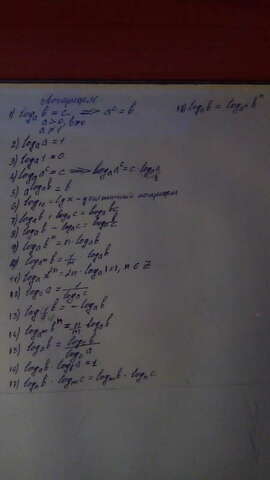 Логарифм
1) logₐb = c => aᶜ = b
a > 0, b > 0
a ≠ 1
2) logₐa = 1
3) logₐ1 = 0
4) logₐaᶜ = c => logₐaᶜ = c·logₐa
5) a^logₐb = b
6) log₁₀x = lgx - десятичный логарифм
7) logₐb + logₐc = logₐbc
8) logₐb - logₐc = logₐb/c
9) logₐbⁿ = n·logₐb
10) log_aᵐ b = 1/m · logₐb
11) logₐx²ⁿ = 2n·logₐ|x|, n ∈ Z
12) log_c a = 1/logₐc
13) log_1/a b = -logₐb
14) log_aᵐ bⁿ = n/m logₐb
15) logₐb = log_c b/log_c a
16) logₐb · log_b a = 1
17) logₐb · log_m c = log_m b · logₐc
18) logₐb = log_aⁿ bⁿ